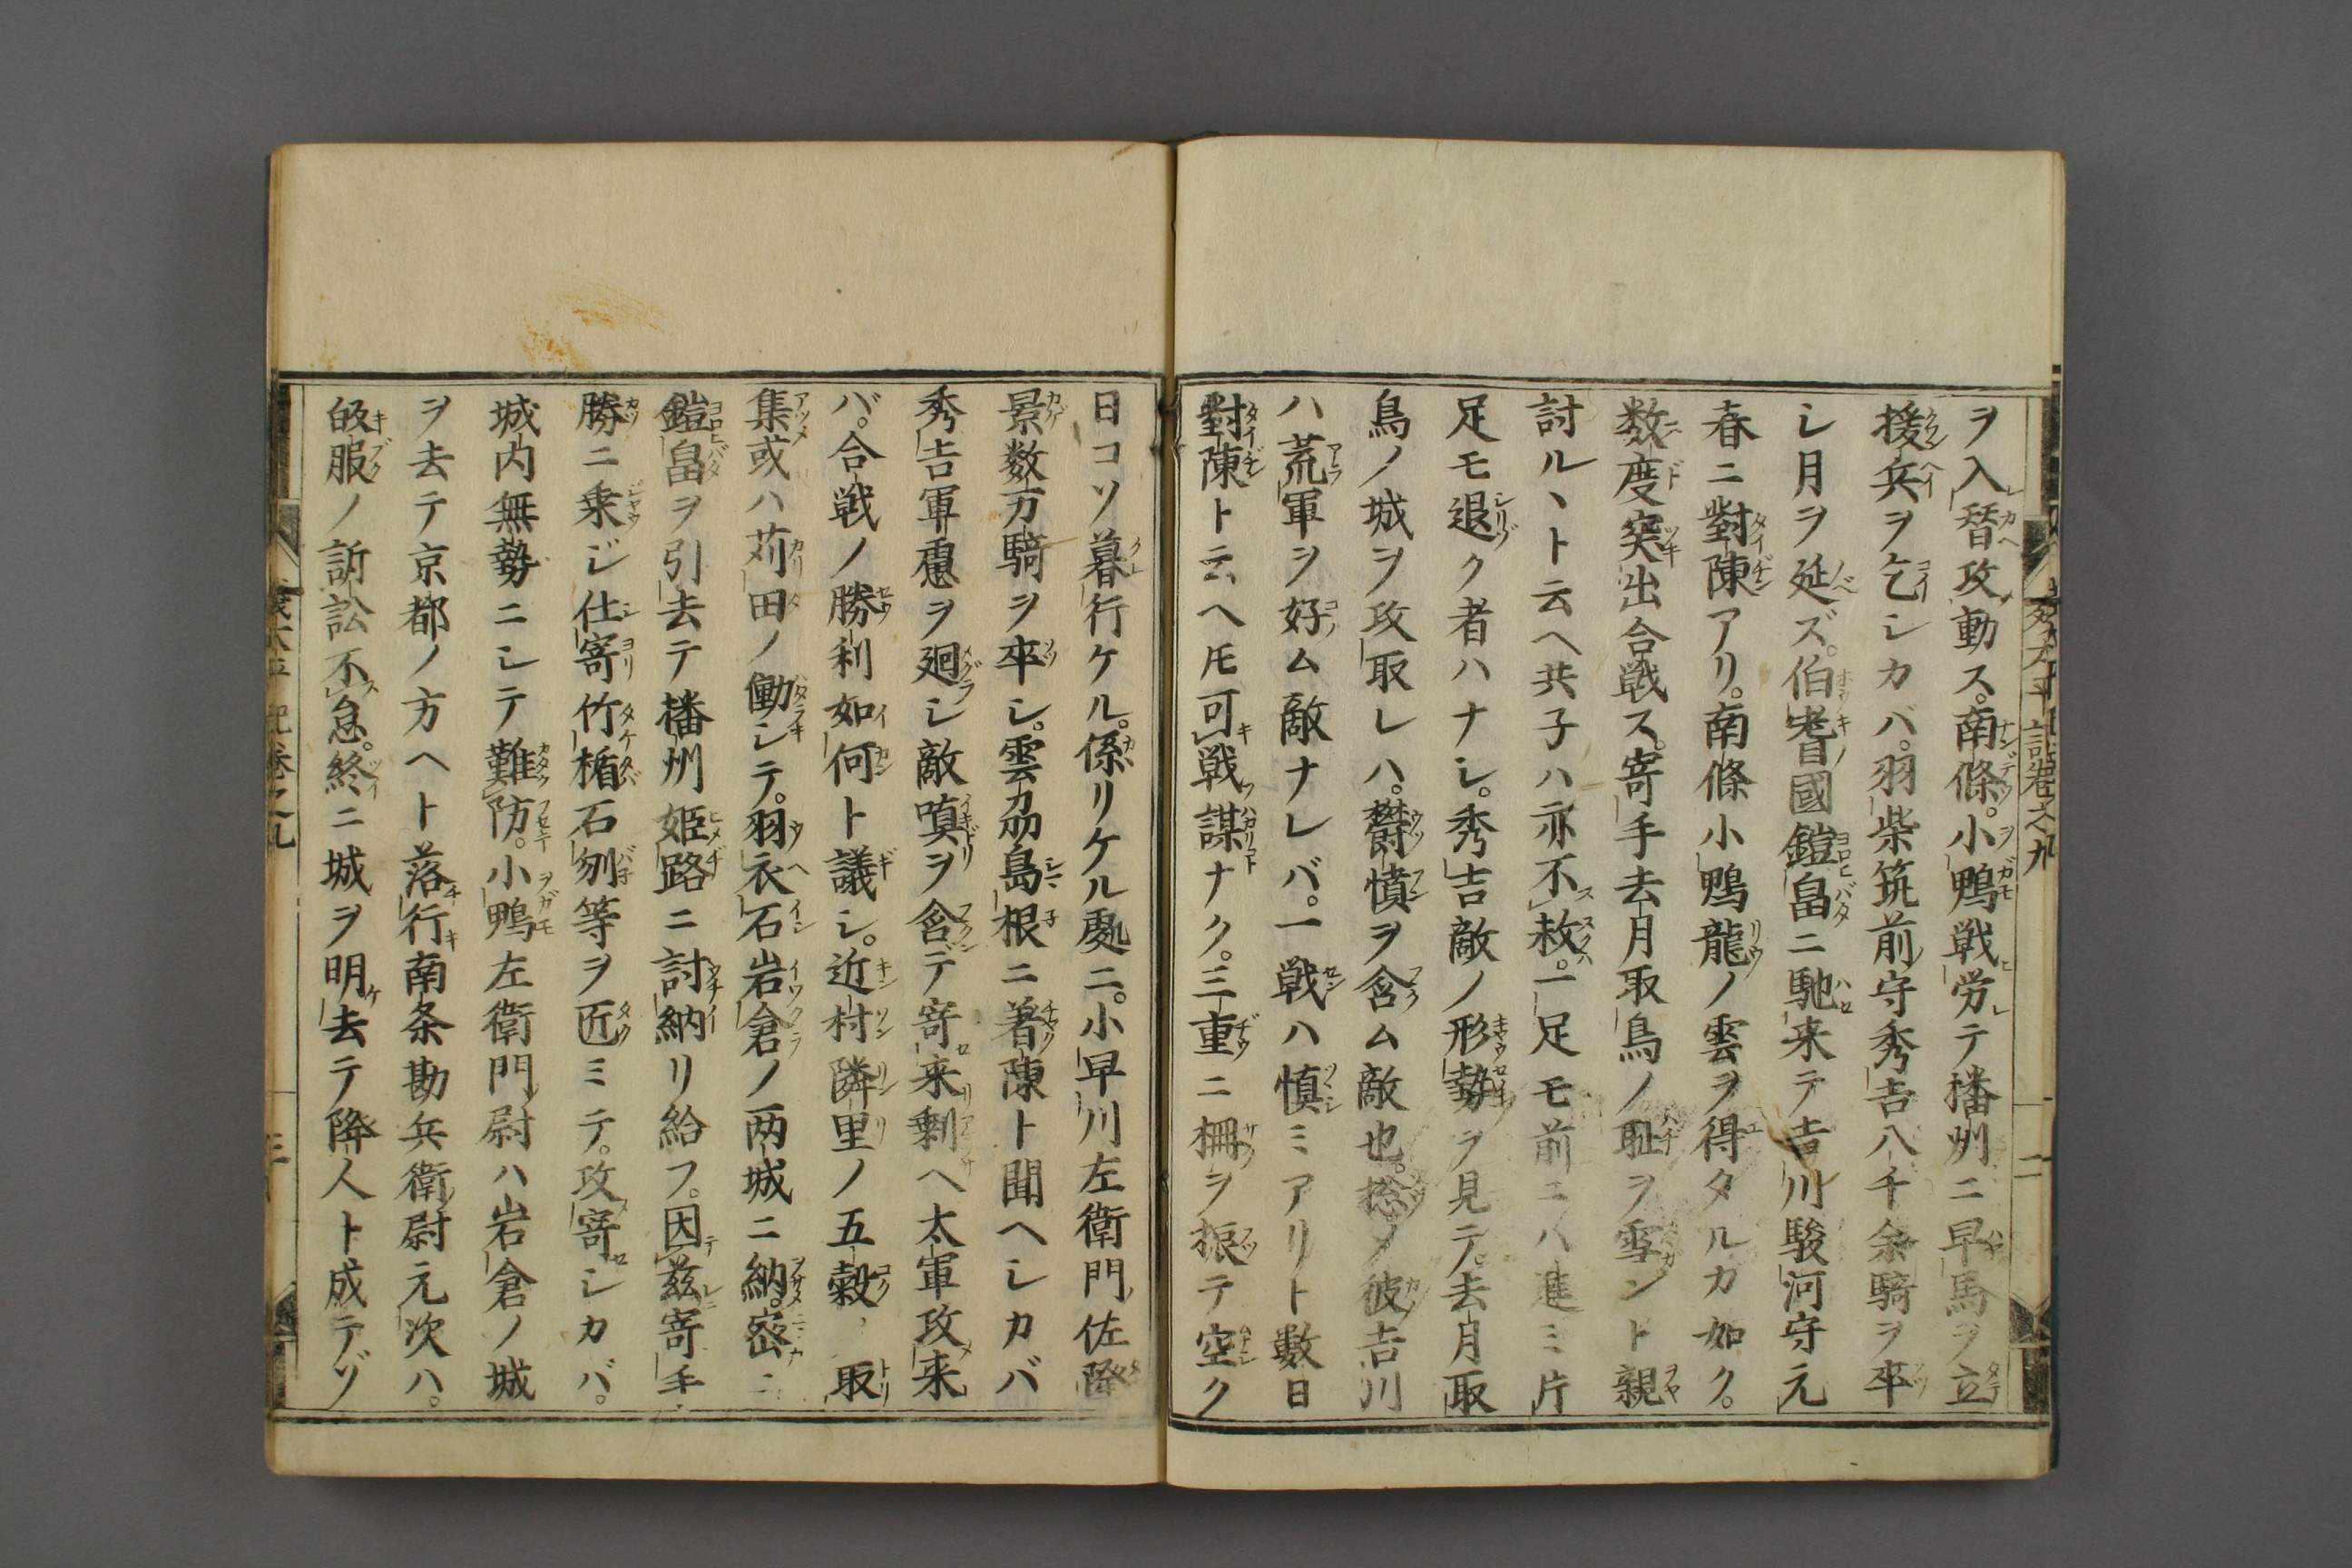 ヲ入替攻動ス。南條。小鴨戦労テ播州ニ早馬ヲ立
援兵ヲ乞シカバ。羽柴筑前守秀吉八千余騎ヲ卒
シ月ヲ延ズ。伯耆國鎧畠ニ馳来テ吉川駿河守元
春ニ對陳アリ。南條小鴨龍ノ雲ヲ得タルカ如ク。
数度突出合戦ス。寄手去月取鳥ノ耻ヲ雪ント親
討ルヽト云ヘ共子ハ亦不救。一足モ前ニハ進ミ片
足モ退ク者ハナシ。秀吉敵ノ形勢ヲ見テ。去月取
鳥ノ城ヲ攻取レハ。欝憤ヲ含ム敵也。捴ノ彼吉川
ハ荒軍ヲ好ム敵ナレバ。一戦ハ慎ミアリト數日
對陳ト云ヘ𪜈可戦謀ナク。三重ニ柵ヲ振テ空ク
日コソ暮行ケル。係リケル處ニ。小早川左衛門佐隆
景数万騎ヲ卒シ。雲刕島根ニ着陳ト聞ヘシカバ
秀吉軍慮ヲ廻シ敵嗔ヲ含デ寄来剰ヘ太軍攻来
バ。合戦ノ勝利如何ト議シ。近村隣里ノ五穀ヲ取
集或ハ苅田ノ働シテ。羽衣石岩倉ノ两城ニ納。宻ニ
鎧畠ヲ引去テ播州姫路ニ討納リ給フ。因茲寄手
勝ニ乗ジ仕寄竹楯石刎等ヲ匠ミテ。攻寄シカバ。
城内無勢ニシテ難防。小鴨左衛門尉ハ岩倉ノ城
ヲ去テ京都ノ方ヘト落行南条勘兵衛尉元次ハ。
皈服ノ訴訟不怠。終ニ城ヲ明去テ降人ト成テゾ